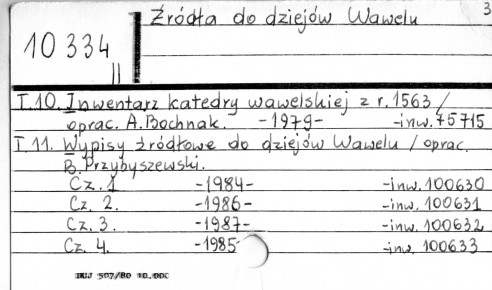 Źródła do dziejów Wawelu
3
10 334
II
T.10. Inwentarz katedry wawelskiej z r. 1563 /
oprac. A. Bochnak. -1979- -inw. 75715
T.11. Wypisy źródłowe do dziejów Wawelu / oprac.
B. Przybyszewski.
Cz. 1 -1984- -inw. 100630
Cz. 2. -1986- -inw. 100631
Cz. 3. -1987- -inw. 100632
Cz. 4. -1985 -inw. 100633
507/80